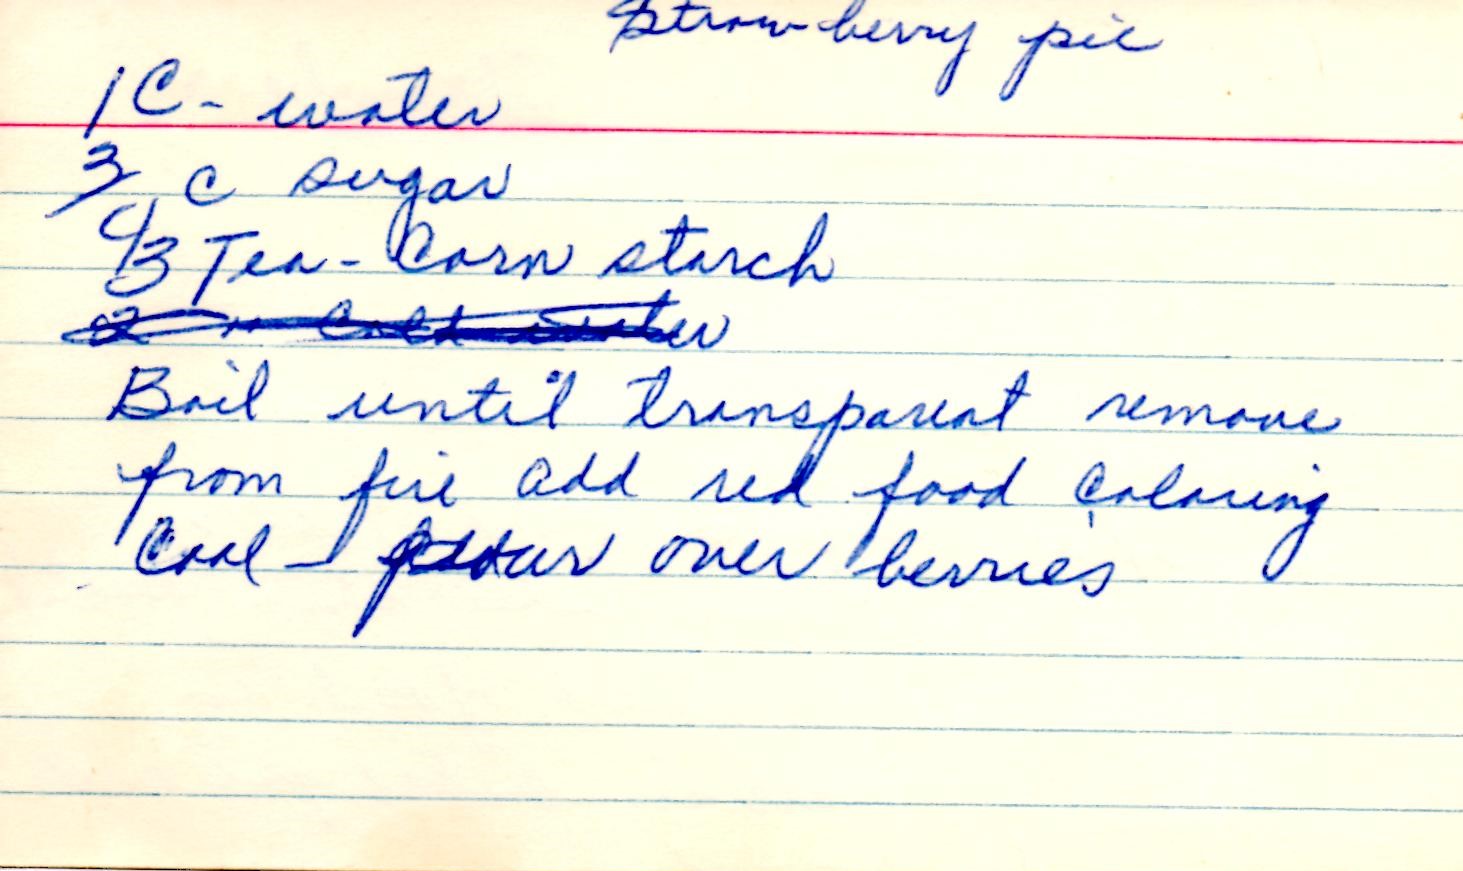 Strawberry pie
1 C - water
3/4 C sugar
3 Tea - Corn starch
Boil until transparent remove
from fire add red food coloring
Cool - pour over berries